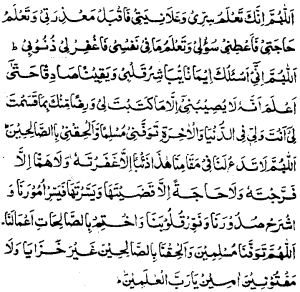 اَللّٰهُمَّ اِنَّكَ تَعْلَمُ سِرِّىْ وَعَلَانِيَتِىْ فَاقْبَلْ مَعْذِرَتِىْ وَتَعْلَمُ
حَاجَتِىْ فَاَعْطِنِىْ سُؤْلِىْ وَتَعْلَمُ مَا فِىْ نَفْسِىْ فَاغْفِرْ لِىْ ذُنُوْبِىْ ط
اَللّٰهُمَّ اِنِّىْ اَسْئَلُكَ اِيْمَانًا يُّبَاشِرُ قَلْبِىْ وَيَقِيْنًا صَادِقًا حَتّٰى
اَعْلَمَ اَنَّهٗ لَا يُصِيْبُنِىْ اِلَّا مَا كَتَبْتَ لِىْ وَرِضًا مِّنْكَ بِمَا قَسَمْتَ
لِىْ اَنْتَ وَلِىِّ فِى الدُّنْيَا وَالْاٰخِرَةِ تَوَفَّنِىْ مُسْلِمًا وَّاَلْحِقْنِىْ بِالصَّالِحِيْنَ ط
اَللّٰهُمَّ لَا تَدَعْ لَنَا فِىْ مَقَامِنَا هٰذَا ذَنْبًا اِلَّا غَفَرْتَهٗ وَلَا هَمًّا اِلَّا
فَرَّجْتَهٗ وَلَا حَاجَةً اِلَّا قَضَيْتَهَا وَيَسَّرْتَهَا فَيَسِّرْ اُمُوْرَنَا وَ
اشْرَحْ صُدُوْرَنَا وَنَوِّرْ قُلُوْبَنَا وَاخْتِمْ بِالصَّالِحَاتِ اَعْمَالَنَا ط
اَللّٰهُمَّ تَوَفَّنَا مُسْلِمِيْنَ وَاَلْحِقْنَا بِالصَّالِحِيْنَ غَيْرَ خَزَايَا وَلَا
مَفْتُوْنِيْنَ اٰمِيْنَ يَا رَبَّ الْعٰلَمِيْنَ ط